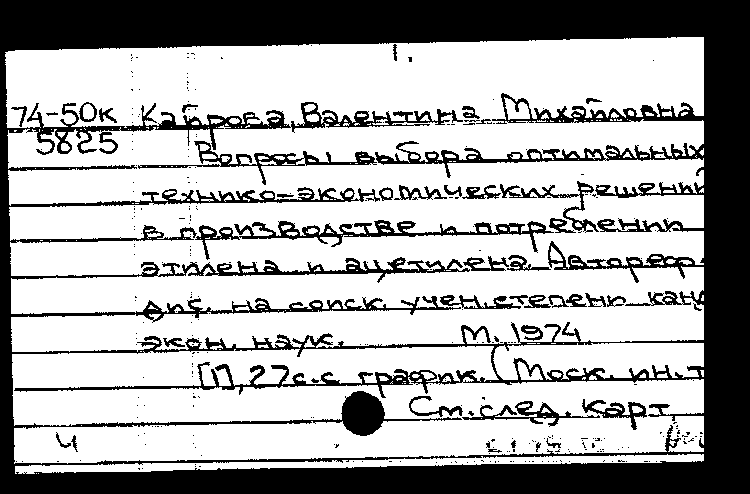 1.
74-50к Кайрова, Валентина Михайловна
5825
Вопросы выбора оптимальных
технико-экономических решений
в производстве и потреблении
этилена и ацетилена. Автореф.
дис. на соиск. учен. степени канд
экон. наук. М., 1974.
[1], 27с. с график. (Моск. ин. т
См. след. карт.
ч